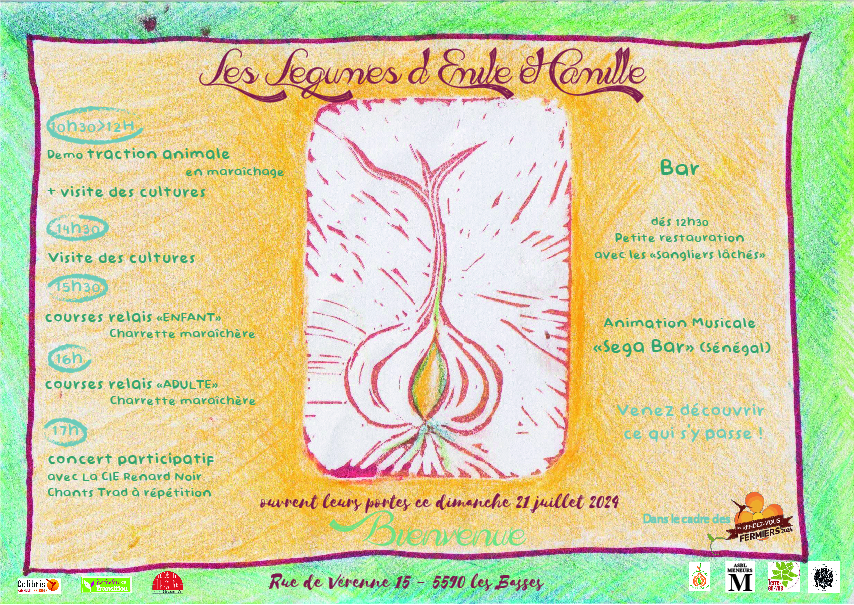 Les Legumes d'Emile et Camille
10h30>12H
Demo traction animale
en maraichage
+ visite des cultures
14h30
Visite des cultures
15h30
courses relais «ENFANT»
Charrette maraichère
16h
courses relais «ADULTE»
Charrette maraichère
17h
concert participatif
avec La CIE Renard Noir
Chants Trad à répétition
Bar
dés 12h30
Petite restauration
avec les «Sangliers lâchés»
Animation Musicale
«Sega Bar» (Sénégal)
Venez découvrir
ce qui s'y passe !
ouvrent leurs portes ce dimanche 21 juillet 2024
Bienvenue
Dans le cadre des
RENDEZ-VOUS
FERMIERS
Rue de Vérenne 15 - 5590 les Basses
Colibris
ASBL
MENEURS
M